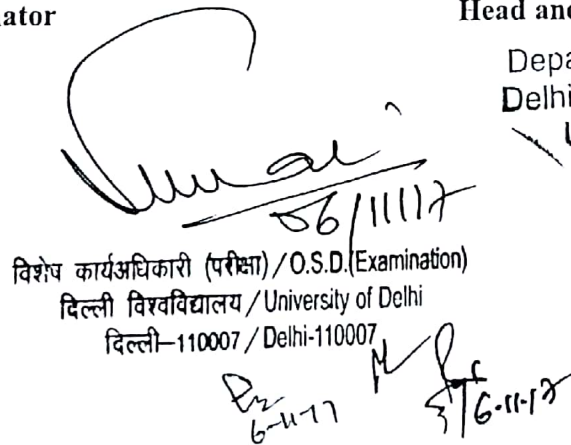 ator
Head and
Depa
Delhi
06/11/17
विशेष कार्यअधिकारी (परीक्षा) / O.S.D. (Examination)
दिल्ली विश्वविद्यालय / University of Delhi
दिल्ली–110007 / Delhi-110007
6-11-17
6-11-17